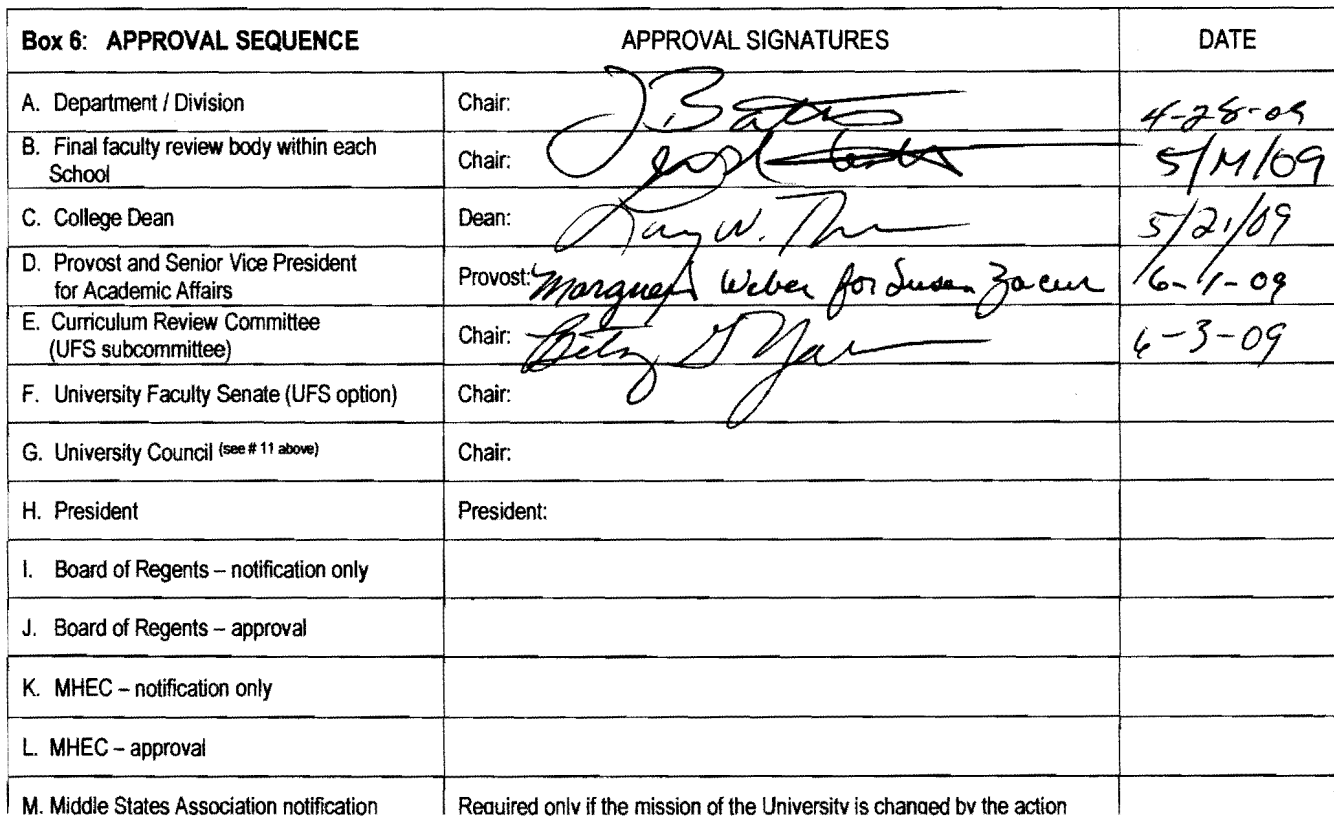 Box 6: APPROVAL SEQUENCE APPROVAL SIGNATURES DATE
A. Department / Division Chair: J Bates 4-28-09
B. Final faculty review body within each
School Chair: 5/ /09
C. College Dean Dean: W. 5/21/09
D. Provost and Senior Vice President
for Academic Affairs Provost: Weber for Susan Zacur 6-1-09
E. Curriculum Review Committee
(UFS subcommittee) Chair: Betsy 6-3-09
F. University Faculty Senate (UFS option) Chair:
G. University Council (see # 11 above) Chair:
H. President President:
I. Board of Regents – notification only
J. Board of Regents – approval
K. MHEC – notification only
L. MHEC – approval
M. Middle States Association notification Required only if the mission of the University is changed by the action